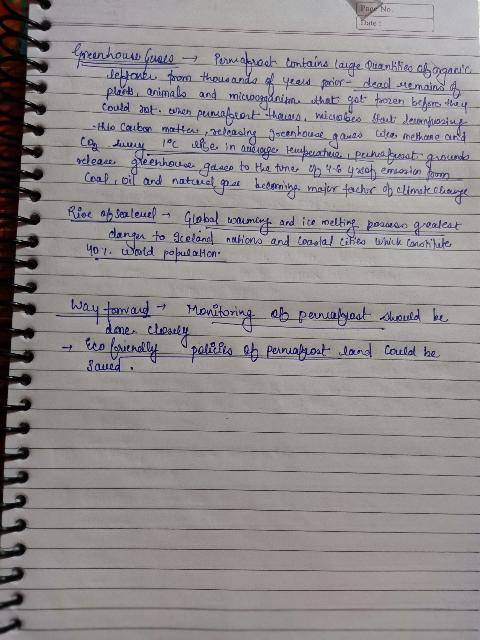 Page No.
Date :
Greenhouse Gases → Permafrost contains large Quantities of organic
leftover from thousands of years prior - dead remains of
plants, animals and microorganism that got frozen before they
could rot. when permafrost thaws, microbes start decomposing
this carbon matter, releasing greenhouse gases like methane and
CO2 every 1°C rise in average temperature, permafrost grounds
release greenhouse gases to the tune of 4-6 yrs of emission from
Coal, oil and natural gas becoming major factor of climate change
Rise of sealevel → Global warming and ice melting possess greatest
danger to Iceland nations and coastal cities which constitute
40% world population.
Way forward → Monitoring of permafrost should be
done closely
→ Eco friendly policies of permafrost land could be
saved.